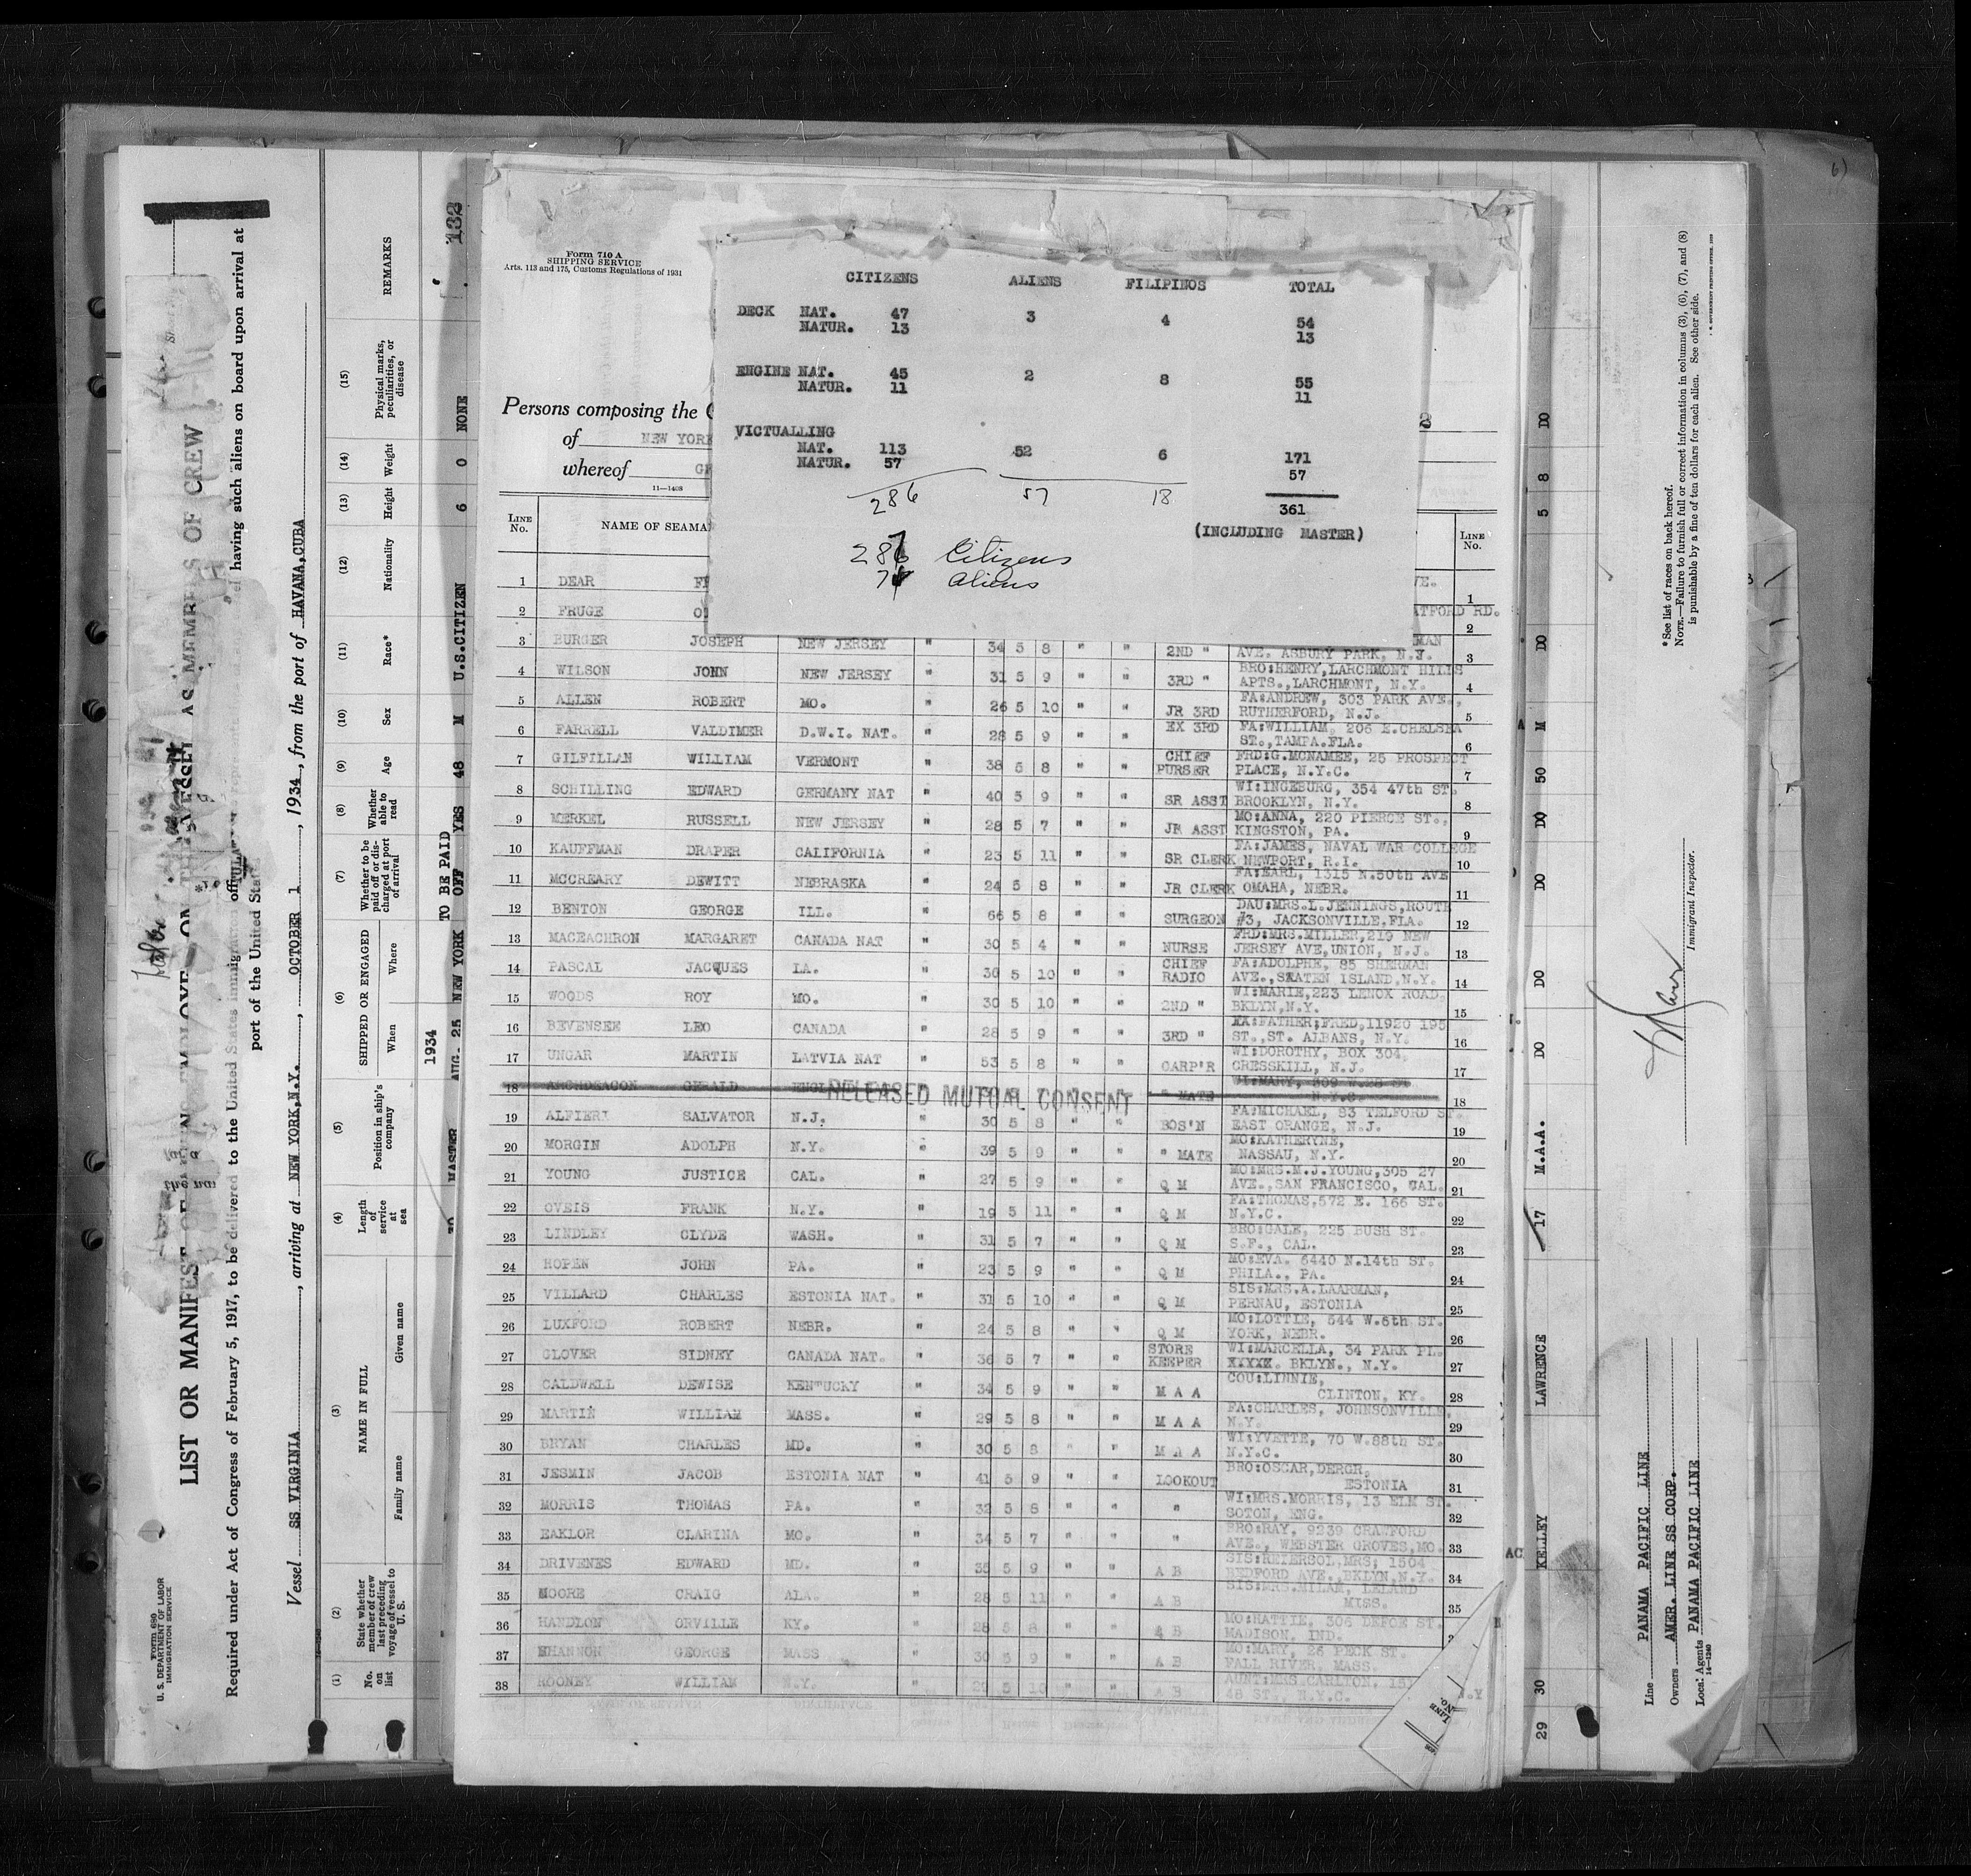 Form 680
U. S. DEPARTMENT OF LABOR
IMMIGRATION SERVICE
LIST OR MANIFEST OF EMPLOYED ON THE VESSEL AS MEMBERS OF CREW
Required under Act of Congress of February 5, 1917, to be delivered to the United States immigration officer having such aliens on board upon arrival at
port of the United States
Vessel SS VIRGINIA, arriving at NEW YORK,N.Y., OCTOBER 1, 1934, from the port of HAVANA,CUBA
(1) No. on list
(2) State whether member of crew last preceding voyage of vessel to U. S.
(3) NAME IN FULL
Family name Given name
(4) Length of service at sea
(5) Position in ship's company
(6) SHIPPED OR ENGAGED
When Where
(7) Whether to be paid off or discharged at port of arrival
(8) Whether able to read
(9) Age
(10) Sex
(11) Race*
(12) Nationality
(13) Height
(14) Weight
(15) Physical marks, peculiarities, or disease
REMARKS
132
1934 TO BE PAID
MASTER AUG. 25 NEW YORK OFF YES 48 M U.S.CITIZEN 6 0 NONE
Form 710 A
SHIPPING SERVICE
Arts. 113 and 175, Customs Regulations of 1931
Persons composing the
of NEW YORK
whereof
11—1408
CITIZENS ALIENS FILIPINOS TOTAL
DECK NAT. 47 3 4 54
NATUR. 13 13
ENGINE NAT. 45 2 8 55
NATUR. 11 11
VICTUALLING
NAT. 113 52 6 171
NATUR. 57 57
286 57 18 361
(INCLUDING MASTER)
287 Citizens
74 aliens
LINE No. NAME OF SEAMA LINE No.
1 DEAR VE. 1
2 FRUGE ATFORD RD. 2
3 BURGER JOSEPH NEW JERSEY " 34 5 8 " " 2ND " MAN
AVE. ASBURY PARK, N.J. 3
4 WILSON JOHN NEW JERSEY " 31 5 9 " " 3RD " BRO:HENRY,LARCHMONT HILLS
APTS.,LARCHMONT, N.Y. 4
5 ALLEN ROBERT MO. " 26 5 10 " " JR 3RD FA:ANDREW, 303 PARK AVE.,
RUTHERFORD, N.J. 5
6 FARRELL VALDIMER D.W.I. NAT. " 28 5 9 " " EX 3RD FA:WILLIAM, 206 E.CHELSEA
ST.,TAMPA.FLA. 6
7 GILFILLAN WILLIAM VERMONT " 38 5 8 " " CHIEF PURSER FRD:G.MCNAMEE, 25 PROSPECT
PLACE, N.Y.C. 7
8 SCHILLING EDWARD GERMANY NAT " 40 5 9 " " SR ASST WI:INGEBURG, 354 47th ST.
BROOKLYN, N.Y. 8
9 MERKEL RUSSELL NEW JERSEY " 28 5 7 " " JR ASST MO:ANNA, 220 PIERCE ST.,
KINGSTON, PA. 9
10 KAUFFMAN DRAPER CALIFORNIA " 23 5 11 " " SR CLERK FA:JAMES, NAVAL WAR COLLEGE
NEWPORT, R.I. 10
11 MCCREARY DEWITT NEBRASKA " 24 5 8 " " JR CLERK FA:EARL, 1315 N.50th AVE
OMAHA, NEBR. 11
12 BENTON GEORGE ILL. " 66 5 8 " " SURGEON DAU:MRS.L.JENNINGS,ROUTE
#3, JACKSONVILLE.FLA. 12
13 MACEACHRON MARGARET CANADA NAT " 30 5 4 " " NURSE FRD:MRS.MILLER,219 NEW
JERSEY AVE,UNION, N.J. 13
14 PASCAL JACQUES LA. " 30 5 10 " " CHIEF RADIO FA:ADOLPHE, 85 SHERMAN
AVE.,STATEN ISLAND,N.Y. 14
15 WOODS ROY MO. " 30 5 10 " " 2ND " WI:MARIE,223 LENOX ROAD.
BKLYN,N.Y. 15
16 BEVENSEE LEO CANADA " 28 5 9 " " 3RD " XX:FATHER;FRED,11920 195
ST.,ST. ALBANS, N.Y. 16
17 UNGAR MARTIN LATVIA NAT " 53 5 8 " " CARP'R WI:DOROTHY, BOX 304,
CRESSKILL, N.J. 17
18 ARCHDEACON GERALD ENGL RELEASED MUTUAL CONSENT " MATE WI:MARY, 309 W.28 ST
N.Y.C. 18
19 ALFIERI SALVATOR N.J. " 30 5 8 " " BOS'N FA:MICHAEL, 83 TELFORD ST.
EAST ORANGE, N.J. 19
20 MORGIN ADOLPH N.Y. " 39 5 9 " " " MATE MO:KATHERYNE,
NASSAU, N.Y. 20
21 YOUNG JUSTICE CAL. " 27 5 9 " " Q M MO:MRS.M.J.YOUNG,305 27
AVE.,SAN FRANCISCO, CAL. 21
22 OVEIS FRANK N.Y. " 19 5 11 " " Q M FA:THOMAS,572 E. 166 ST.
N.Y.C. 22
23 LINDLEY CLYDE WASH. " 31 5 7 " " Q M BRO:GALE, 225 BUSH ST.
S.F., CAL. 23
24 HOPEN JOHN PA. " 23 5 9 " " Q M MO:EVA. 6440 N.14th ST.
PHILA., PA. 24
25 VILLARD CHARLES ESTONIA NAT. " 31 5 10 " " Q M SIS:MRS.A.LAARMAN,
PERNAU, ESTONIA 25
26 LUXFORD ROBERT NEBR. " 24 5 8 " " Q M MO:LOTTIE, 544 W.8th ST.
YORK, NEBR. 26
27 GLOVER SIDNEY CANADA NAT. " 36 5 7 " " STORE KEEPER WI:MARCELLA, 34 PARK PL.
XXXXX. BKLYN., N.Y. 27
28 CALDWELL DEWISE KENTUCKY " 34 5 9 " " M A A COU:LINNIE,
CLINTON, KY. 28
29 MARTIN WILLIAM MASS. " 29 5 8 " " M A A FA:CHARLES, JOHNSONVILLE,
N.Y. 29
30 BRYAN CHARLES MD. " 30 5 8 " " M A A WI:YVETTE, 70 W.88th ST.
N.Y.C. 30
31 JESMIN JACOB ESTONIA NAT " 41 5 9 " " LOOKOUT BRO:OSCAR,DERGR,
ESTONIA 31
32 MORRIS THOMAS PA. " 32 5 8 " " " WI:MRS.MORRIS, 13 ELM ST.
SOTON, ENG. 32
33 EAKLOR CLARINA MO. " 34 5 7 " " " BRO:RAY, 9239 CRAWFORD
AVE., WEBSTER GROVES,MO. 33
34 DRIVENES EDWARD MD. " 35 5 9 " " A B SIS:REIERSOL,MRS; 1504
BEDFORD AVE.,BKLYN,N.Y. 34
35 MOORE CRAIG ALA. " 28 5 11 " " A B SIS:MRS.MILAM, LELAND
MISS. 35
36 HANDLON ORVILLE KY. " 28 5 8 " " A B MO:HATTIE, 306 DEFOE ST.
MADISON, IND.
37 SHANNON GEORGE MASS " 30 5 9 " " A B MO:MARY, 26 PECK ST.
FALL RIVER, MASS.
38 ROONEY WILLIAM N.Y. " 29 5 10 " " A B AUNT:MRS.CARLTON, 151
48 ST., N.Y.C.
LINE No.
29 30 KELLEY LAWRENCE 17 M.A.A. DO DO DO DO 50 M DO 5 8 DO
Line PANAMA PACIFIC LINE
Owners AMER. LINE SS CORP.
Local Agents PANAMA PACIFIC LINE
14—1240
Immigrant Inspector.
*See list of races on back hereof.
NOTE.—Failure to furnish full or correct information in columns (3), (6), (7), and (8)
is punishable by a fine of ten dollars for each alien. See other side.